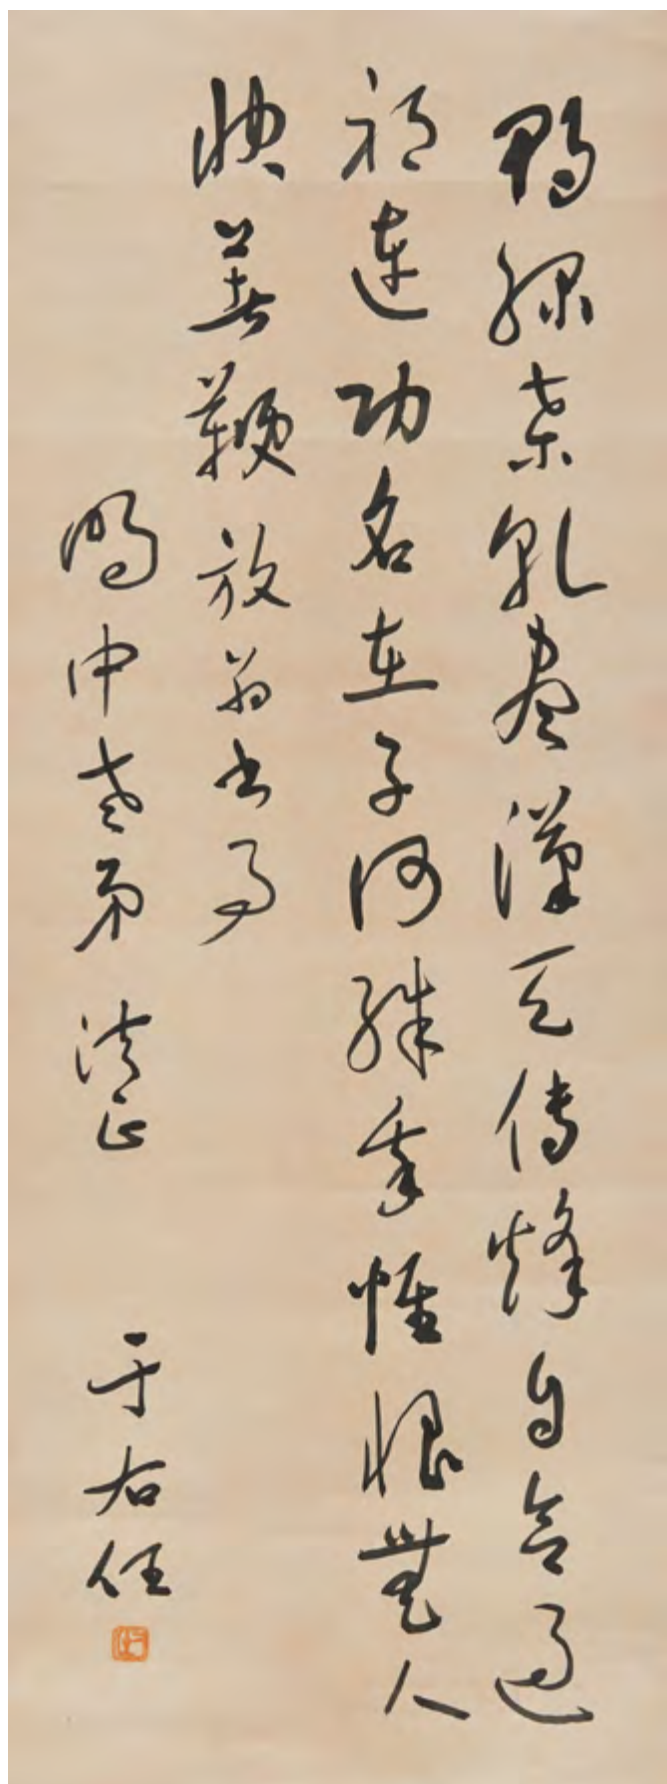 鴨綠桑乾盡漢天傳烽自合過
祁連功名在子何殊我惟恨無人
快著鞭放翁書事
中老弟法正 于右任